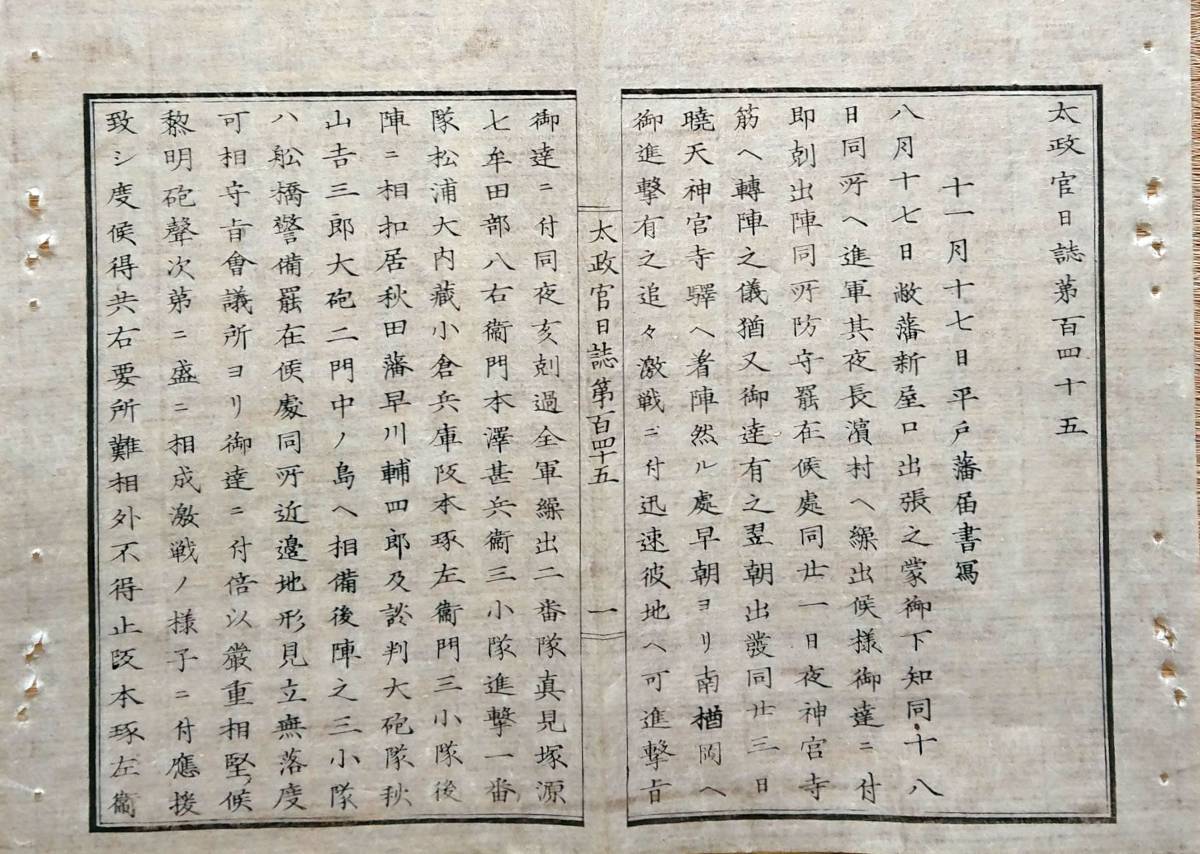 太政官日誌第百四十五
十一月十七日平戸藩届書寫
八月十七日敝藩新屋口出張之蒙御下知同十八
日同所へ進軍其夜長濱村へ繰出候様御達ニ付
即剋出陣同所防守罷在候處同廿一日夜神宮寺
筋へ轉陣之儀猶又御達有之翌朝出發同廿三日
曉天神宮寺驛へ着陣然ル處早朝ヨリ南楢岡へ
御進擊有之追々激戰ニ付迅速彼地へ可進擊旨
太政官日誌第百四十五 一
御達ニ付同夜亥剋過全軍繰出二番隊真見塚源
七牟田部八右衞門本澤甚兵衞三小隊進擊一番
隊松浦大内藏小倉兵庫阪本琢左衞門三小隊後
陣ニ相扣居秋田藩早川輔四郎及談判大砲隊秋
山吉三郎大砲二門中ノ島へ相備後陣之三小隊
ハ舩橋警備罷在候處同所近邊地形見立無落度
可相守旨會議所ヨリ御達ニ付倍以嚴重相堅候
黎明砲聲次第ニ盛ニ相成激戰ノ様子ニ付應援
致シ度候得共右要所難相外不得止阪本琢左衞